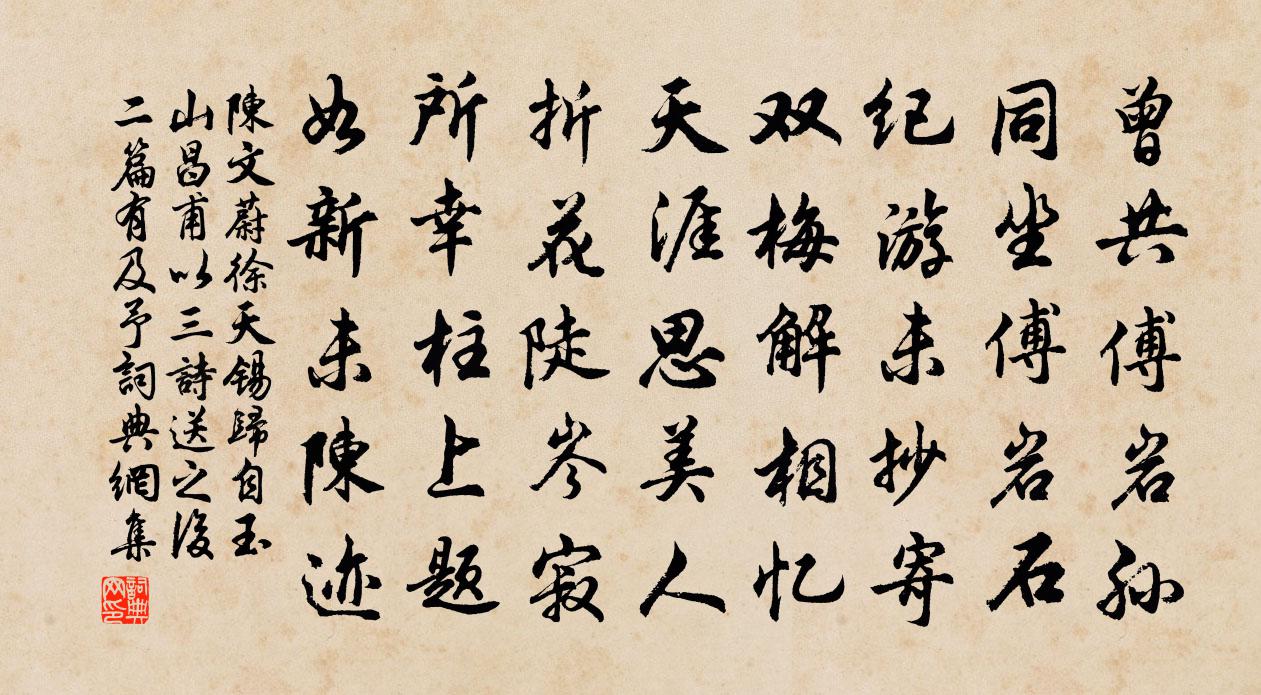 曾共傅岩孙
同坐傅岩石
纪游未抄寄
双梅解相忆
天涯思美人
折花陡岑寂
所幸柱上题
如新未陳迹
陳文蔚徐天錫歸自玉
山昌甫以三詩送之後
二篇有及予詞典網集
詞典网印